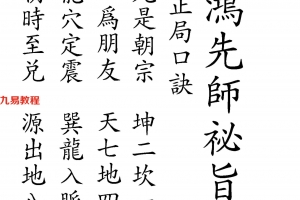 鴻先師祕旨
正局口訣
是朝宗
坤二坎一
爲朋友
天七地四
龍穴定震
巽龍入脈
時至兌
源出地八
九易教程